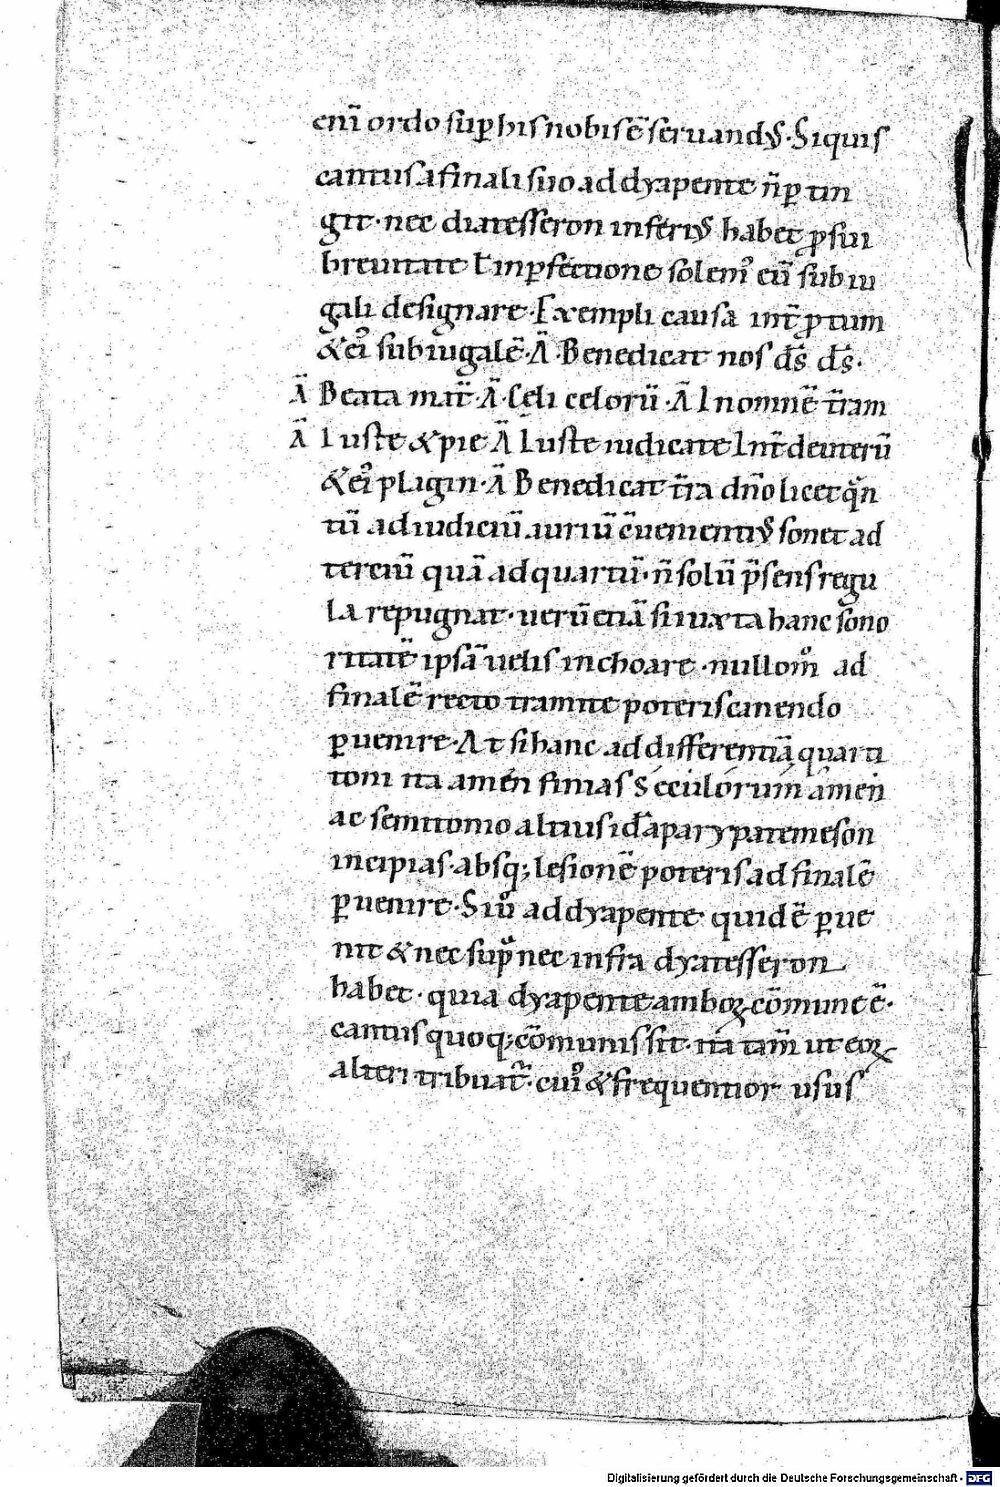 enī ordo suꝑ his nobis ē seruandꝰ. Siquis
cantus a finali suo ad dyapente n̄ ꝑtin
git. nec diatesseron inferiꝰ habet ꝓ sui
breuitate ł inꝑfectione solemꝰ eū subiu
gali designare. Exempli causa int̄ ꝓtum
& eiꝰ subiugalē. Ā. Benedicat nos d̄s d̄s.
Ā Beata mat̄. Ā. Celi celorū. Ā Inomine t̄ram
Ā Iuste & pie Ā Iuste iudicate Int̄ deuterū
& eiꝰ plagin. Ā Benedicat t̄ra dn̄o licet qn̄
tū ad iudiciū auriū c̄uenientiꝰ sonet ad
terciū quā ad quartū. n̄ solū p̄sens regu
la repugnat. uerū etiā si iuxta hanc sono
ritatē ipsā uelis inchoare. nullomͦ ad
finalē recto tramite poteris canendo
ꝑuenire. At si hanc ad differentiā quarti
toni ita amen finias Seculorum amen
ac semitonio altius id ē a parypatemeson
incipias. absq; lesione poteris ad finalē
ꝑuenire. Siuͦ ad dyapente quidē ꝑue
nit & nec supͣ nec infra dyatesseron
habet. quia dyapente amboꝝ cōmune ē.
cantus quoq; cōmunis sit. ita tam̄ ut eoꝝ
alteri tribuat᷑. cuiꝰ & frequentior usus
Digitalisierung gefördert durch die Deutsche Forschungsgemeinschaft - DFG